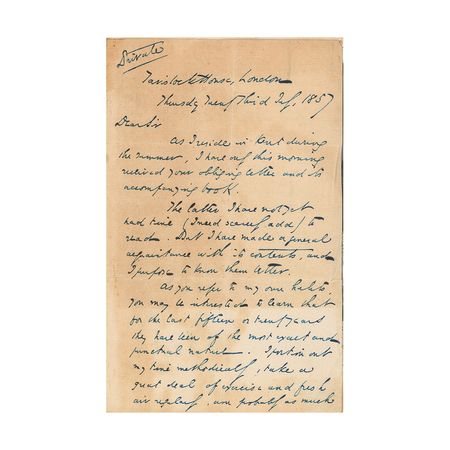 Private
Tavistock House, London
Thursday Twenty Third July, 1857
Dear Sir
As I reside in Kent during
the summer, I have only this morning
received your obliging letter and its
accompanying book.
The latter I have not yet
had time (I need scarcely add) to
read. But I have made a general
acquaintance with its contents, and
I purpose to know them better.
As you refer to my own habits,
you may be interested to learn that
for the last fifteen or twenty years
they have been of the most exact and
punctual nature. I portion out
my time methodically, take a
great deal of exercise and fresh
air regularly, am probably as much